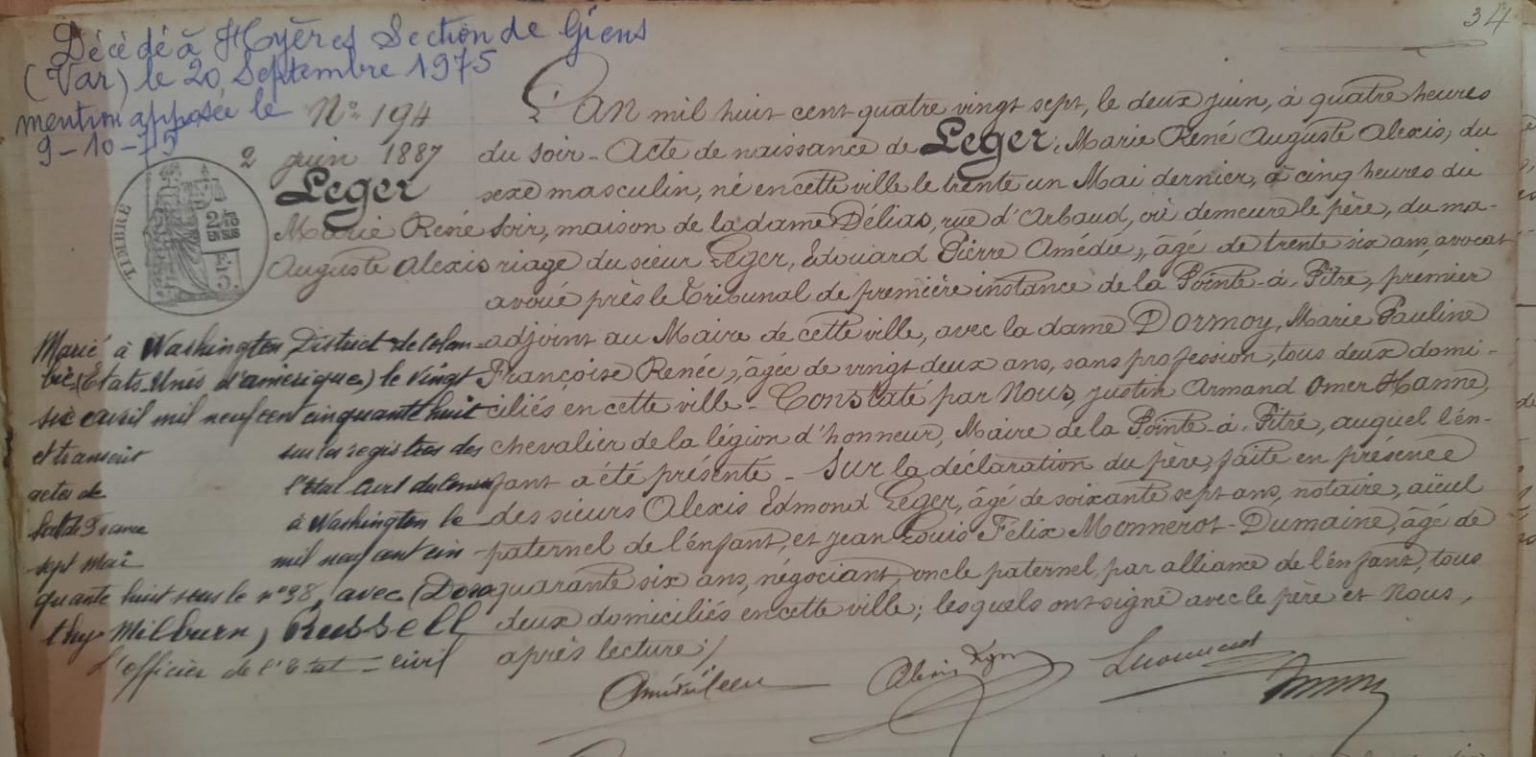 34
Décédé à Hyères Section de Giens
(Var) le 20 Septembre 1975
mention apposée le
9-10-75
N° 194
2 juin 1887
Leger
Marie René
Auguste Alexis
TIMBRE
Marié à Washington District de Colom-
bie (Etats-Unis d'amérique) le vingt
six avril mil neuf cent cinquante huit
et transcrit sur les registres des
actes de l'état civil du Consu
lat de France à Washington le
sept Mai mil neuf cent cin
quante huit sous le n° 98, avec (Doro
thy Milburn, Russell
L'officier de l'Etat-civil
L'AN mil huit cent quatre vingt sept, le deux juin, à quatre heures
du soir - Acte de naissance de Leger, Marie René Auguste Alexis, du
sexe masculin, né en cette ville le trente un Mai dernier, à cinq heures du
soir, maison de la dame Délias, rue d'Arbaud, où demeure le père, du ma-
riage du sieur Leger, Edouard Pierre Amédée, âgé de trente six ans, avocat
avoué près le Tribunal de première instance de la Pointe-à-Pitre, premier
adjoint au Maire de cette ville, avec la dame Dormoy, Marie Pauline
Françoise Renée, âgée de vingt deux ans, sans profession, tous deux domi-
ciliés en cette ville - Constaté par Nous, Justin Armand Omer Hanne,
chevalier de la légion d'honneur, Maire de la Pointe-à-Pitre, auquel l'en-
fant a été présenté - Sur la déclaration du père, faite en présence
des sieurs Alexis Edmond Leger, âgé de soixante sept ans, notaire, aïeul
paternel de l'enfant, et Jean Louis Félix Monnerot-Dumaine, âgé de
quarante six ans, négociant, oncle paternel, par alliance de l'enfant, tous
deux domiciliés en cette ville; lesquels ont signé avec le père et Nous,
après lecture /